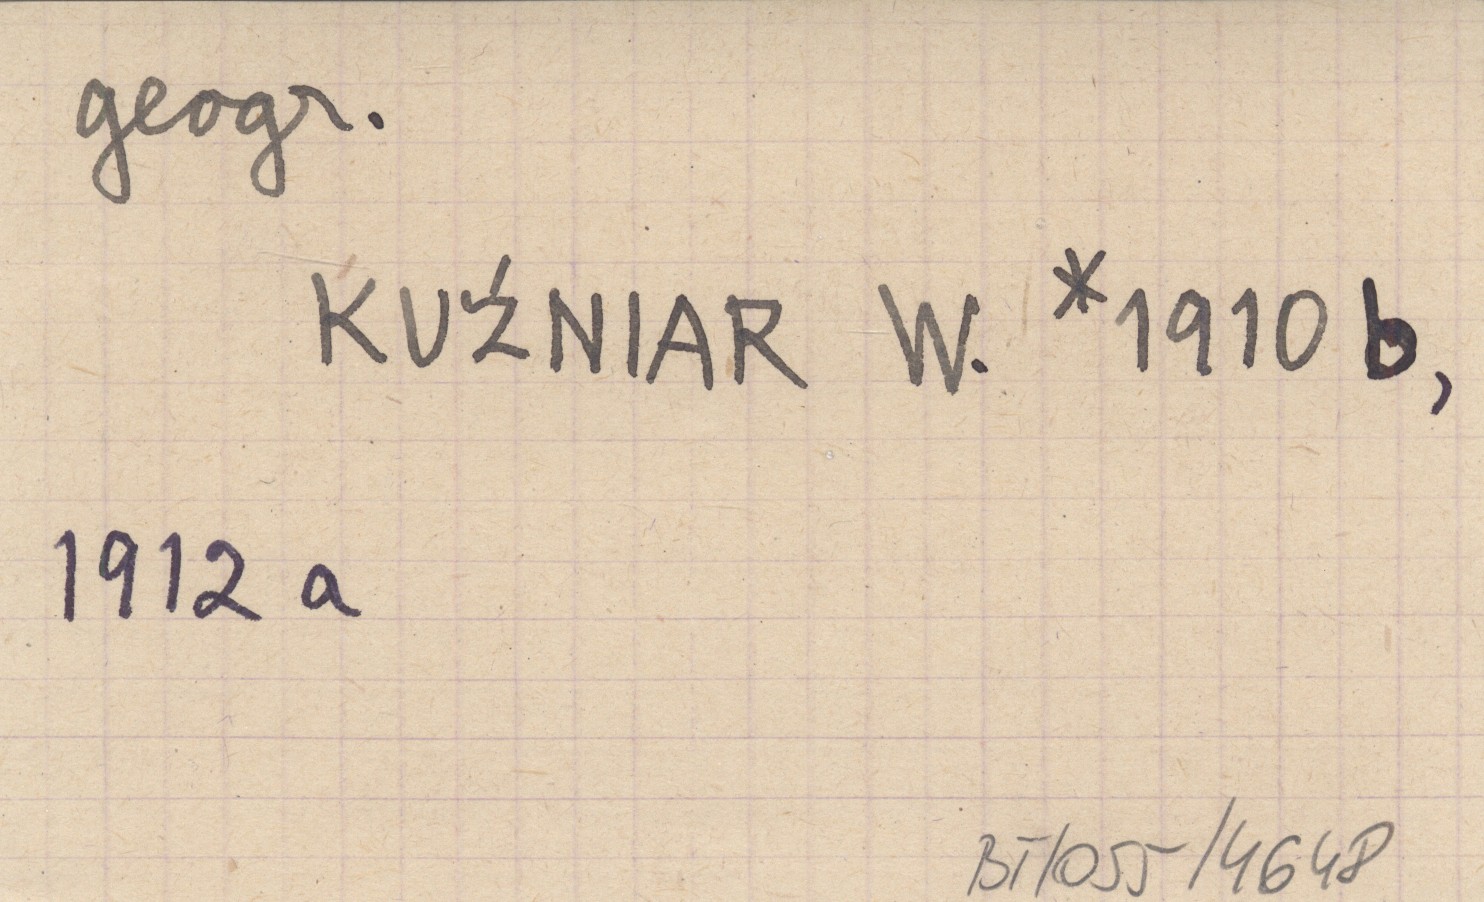 geogr.
KUŹNIAR W. *1910 b,
1912 a
BT/055/4648